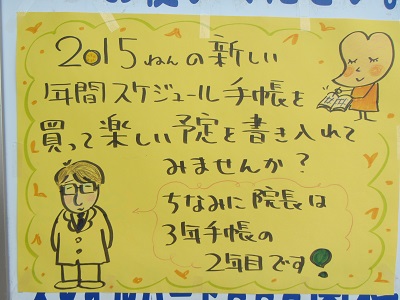 2015ねんの新しい
1年間スケジュール手帳を
買って楽しい予定を書き入れて
みませんか?
ちなみに院長は
3年手帳の
2年目です!